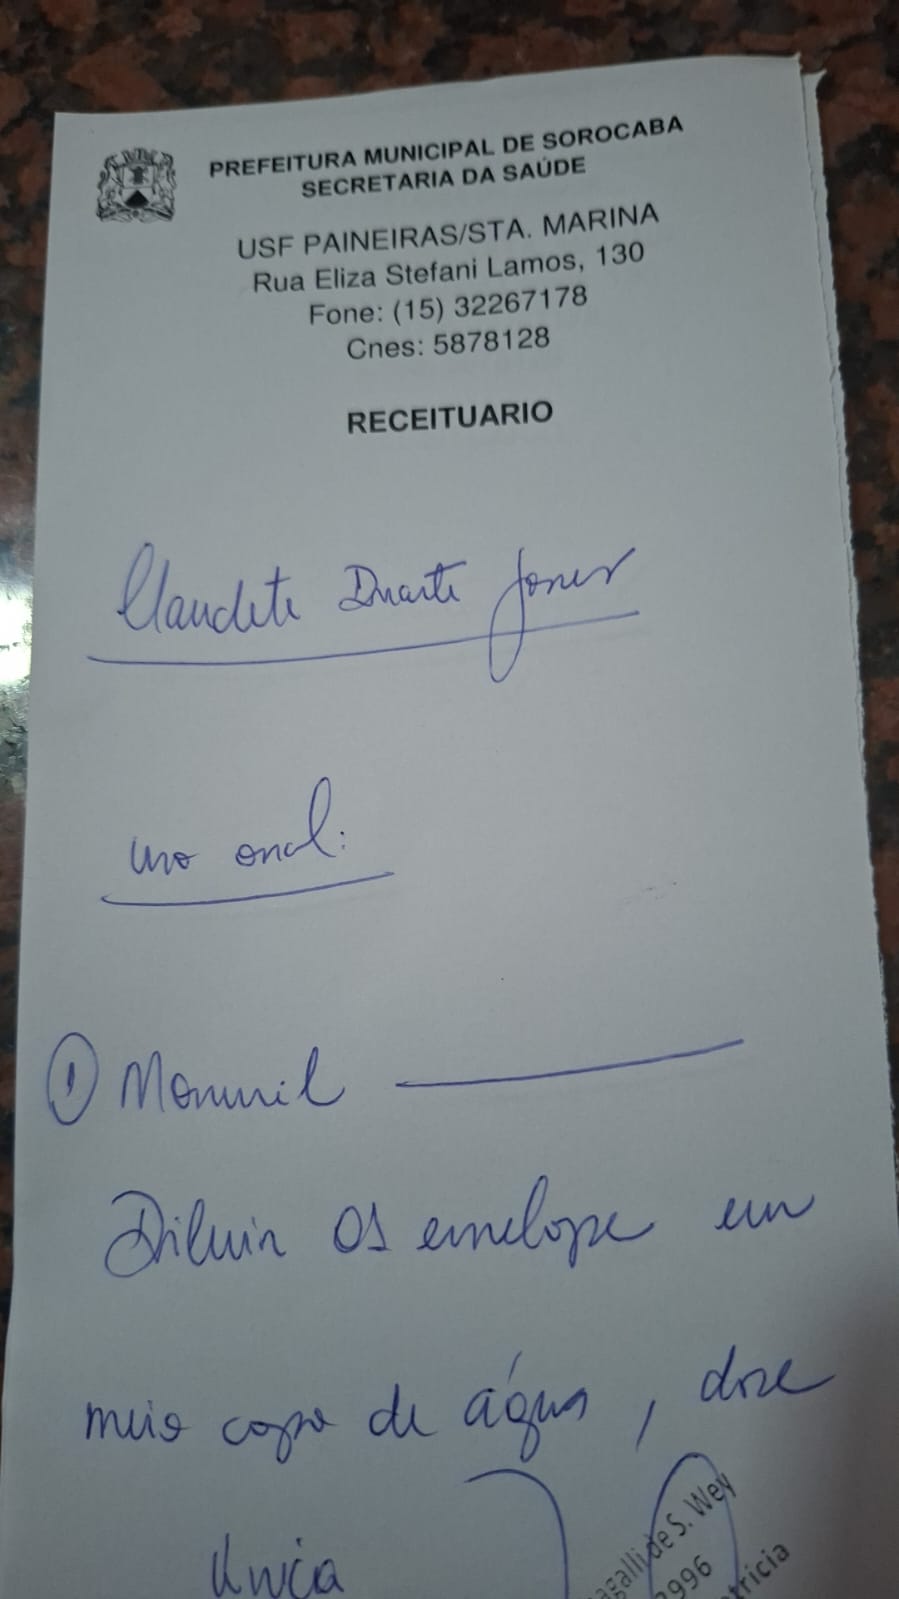 PREFEITURA MUNICIPAL DE SOROCABA
SECRETARIA DA SAÚDE
USF PAINEIRAS/STA. MARINA
Rua Eliza Stefani Lamos, 130
Fone: (15) 32267178
Cnes: 5878128
RECEITUARIO
Claudete Duarte Jones
uso oral:
1 Monuril
Diluir 01 envelope em
meio copo de água, dose
única
de S. Wey